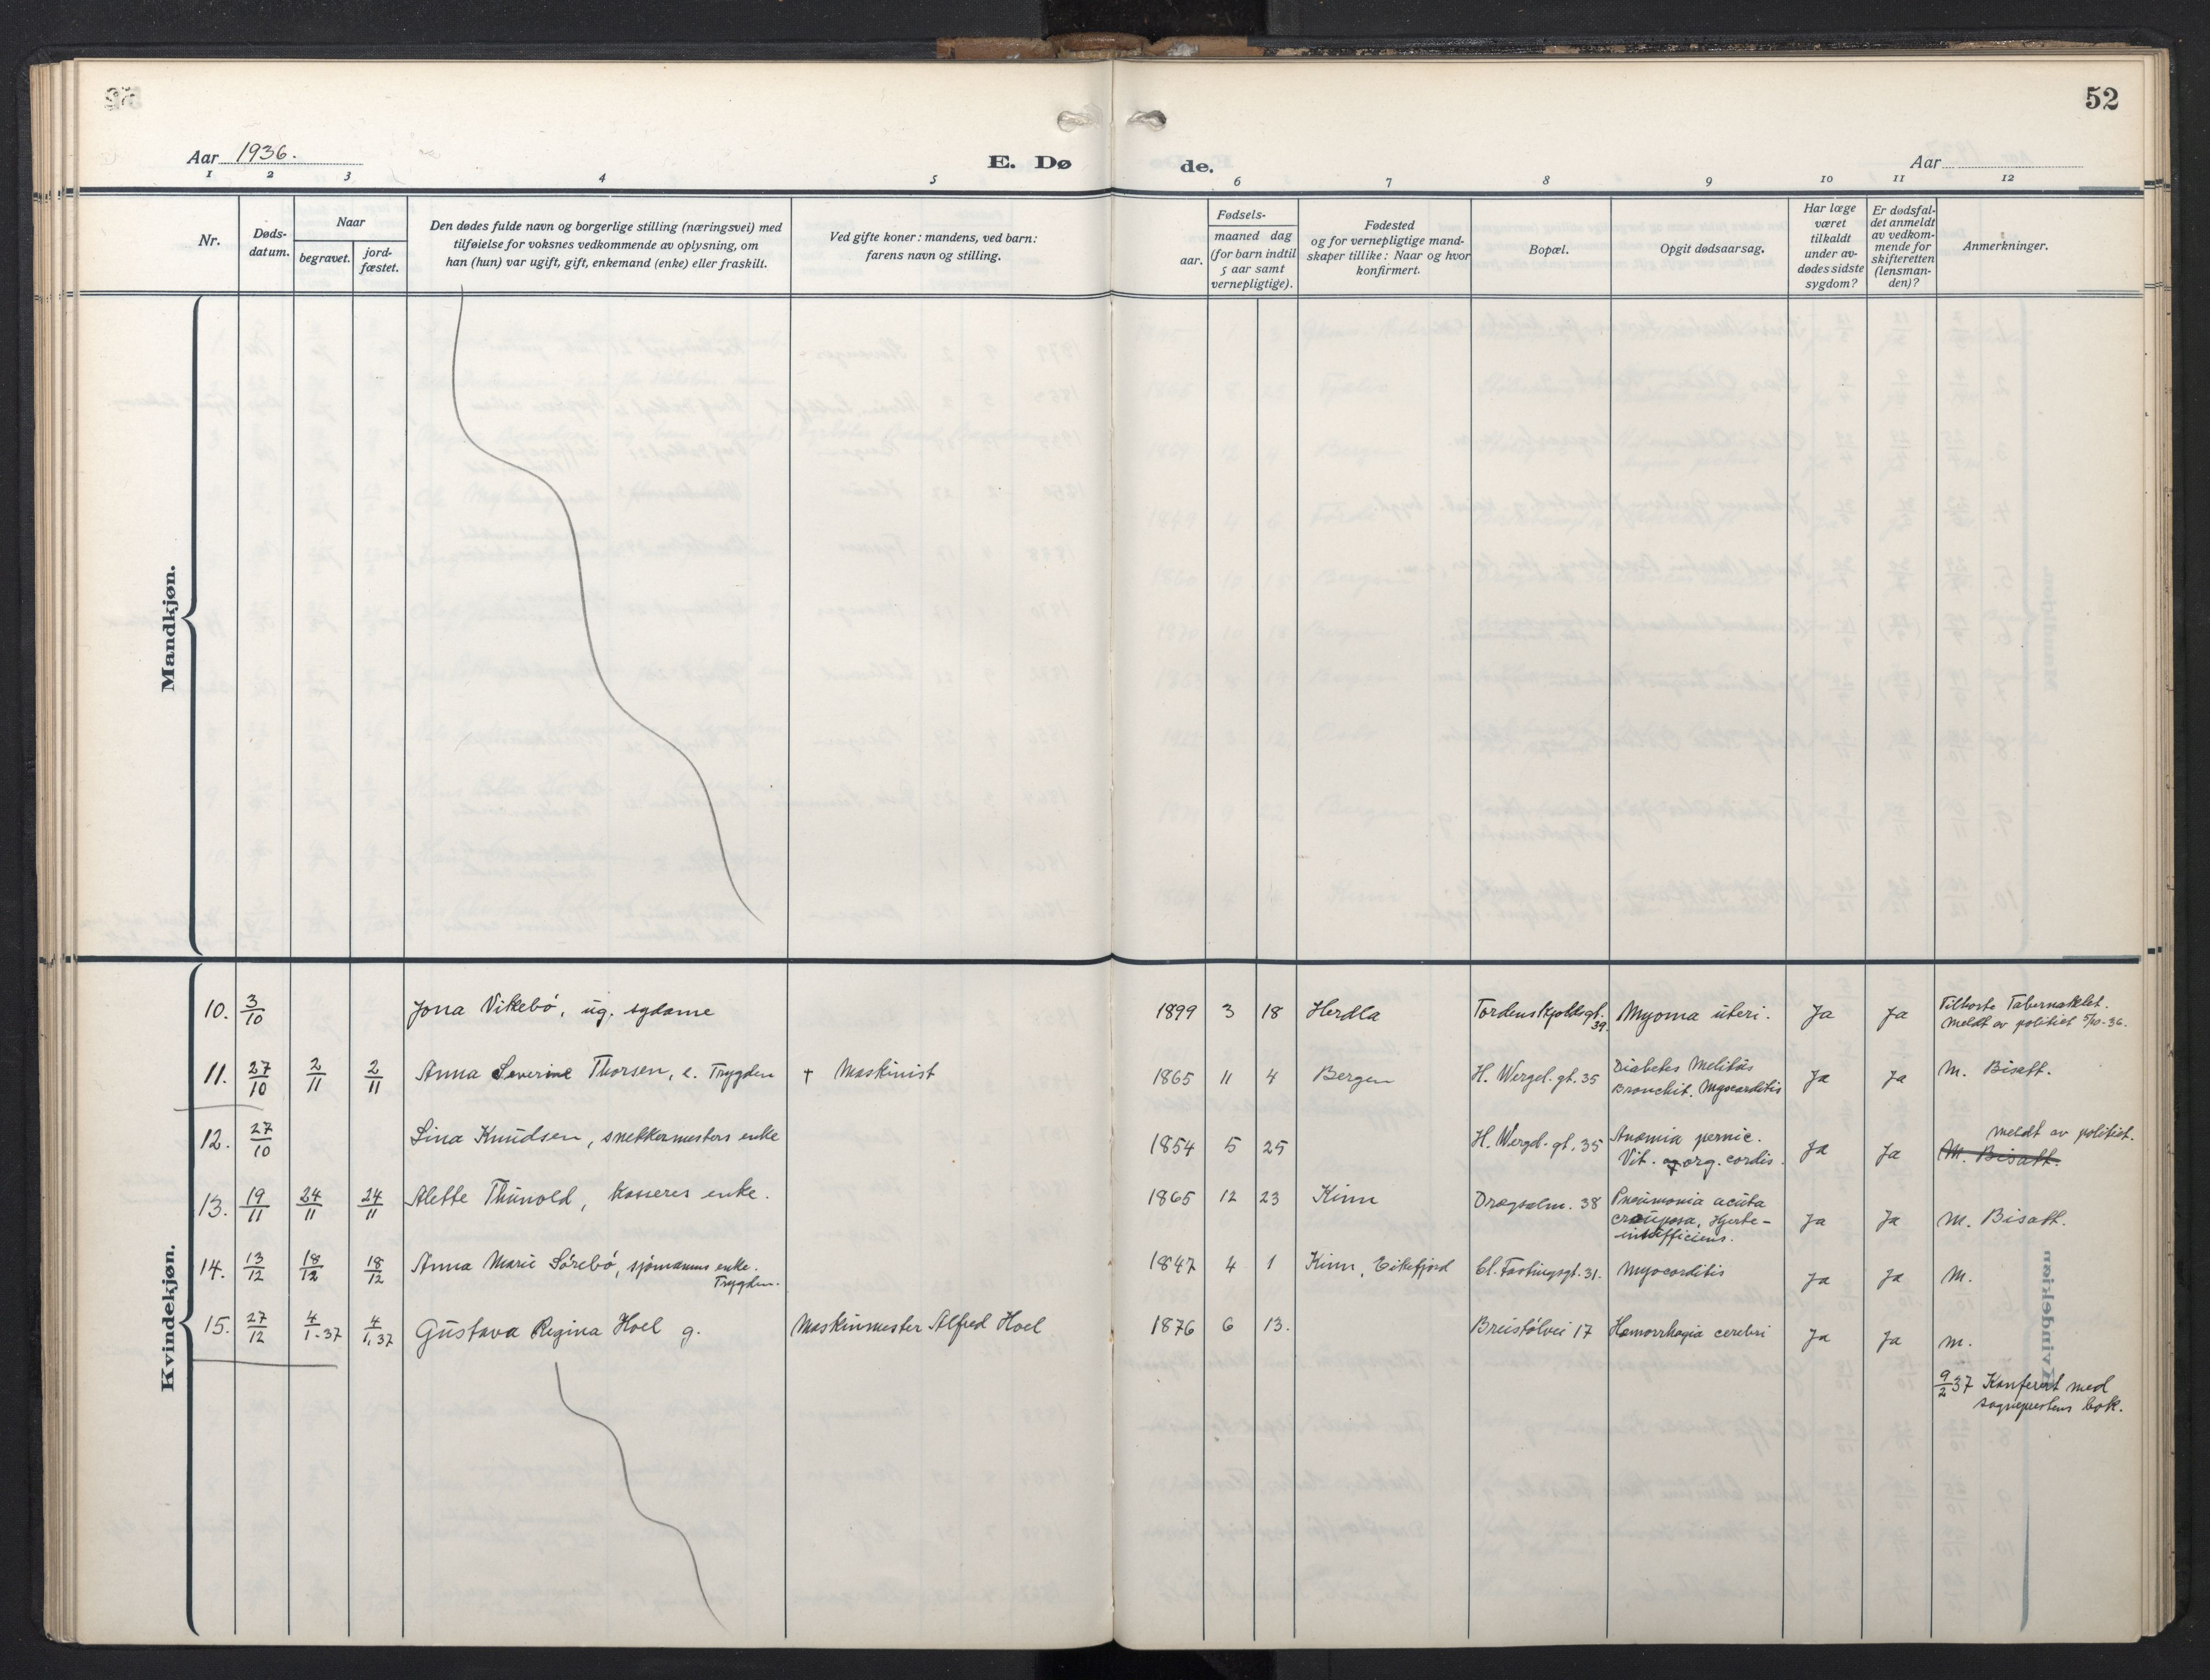 52
Aar 1936.
E. Dø
de.
Aar
1 2 3 4 5 6 7 8 9 10 11 12
Nr.
Døds-
datum.
Naar
begravet.
jord-
fæstet.
Den dødes fulde navn og borgerlige stilling (næringsvei) med
tilføielse for voksnes vedkommende av oplysning, om
han (hun) var ugift, gift, enkemand (enke) eller fraskilt.
Ved gifte koner: mandens, ved barn:
farens navn og stilling.
Fødsels-
aar.
maaned dag
(for barn indtil
5 aar samt
vernepligtige).
Fødested
og for vernepligtige mand-
skaper tillike: Naar og hvor
konfirmert.
Bopæl.
Opgit dødsaarsag.
Har læge
været
tilkaldt
under av-
dødes sidste
sygdom?
Er dødsfal-
det anmeldt
av vedkom-
mende for
skifteretten
(lensman-
den)?
Anmerkninger.
Mandkjøn.
Kvindekjøn.
10. 3/10 Jona Vikebö, ug. sydame 1899 3 18 Herdla Tordenskjoldsgt. 39. Myoma uteri. Ja Ja Tilhørte Tabernaklet.
Meldt av politiet 5/10-36.
11. 27/10 2/11 2/11 Anna Severine Thorsen, e. Trygden † Maskinist 1865 11 4 Bergen H. Wergel. gt. 35 Diabetes Melitus
Bronchit. Myocarditis Ja Ja M. Bisatt.
12. 27/10 Lina Knudsen, snekkermesters enke 1854 5 25 H. Wergel. gt. 35 Anæmia pernic.
Vit. org. cordis. Ja Ja meldt av politiet.
M. Bisatt.
13. 19/11 24/11 24/11 Alette Thunold, kasseres enke. 1865 12 23 Kinn 38 Pneumonia acuta
crouposa, Hjerte-
insufficiens. Ja Ja M. Bisatt.
14. 13/12 18/12 18/12 Anna Marie Sörebö, sjömanns enke.
Trygden. 1847 4 1 Kinn, Eikefjord Cl. Fastingsgt. 31. Myocarditis Ja Ja M.
15. 27/12 4/1-37 4/1.37 Gustava Regina Hoel g. Maskinmester Alfred Hoel 1876 6 13. Breistölvei 17 Hæmorrhagia cerebri Ja Ja M.
9/2 37 Konferert med
sogneprestens bok.